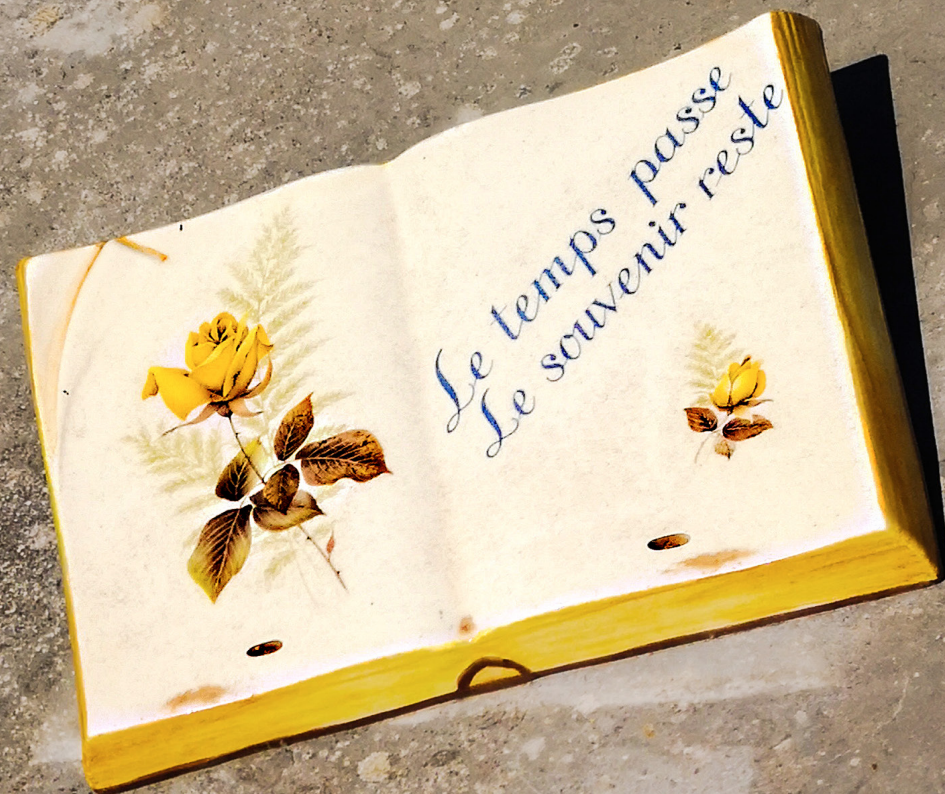 Le temps passe
Le souvenir reste